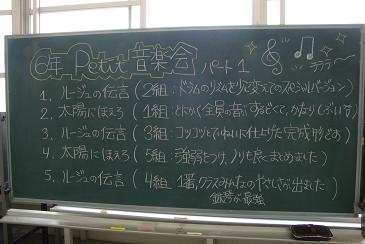 6年 Petit 音楽会 パート1
ラララ〜
1. ルージュの伝言 (2組: ドラムのリズムを少し変えてのスペシャルバージョン)
2. 太陽にほえろ (1組: とにかく全員の音がするどくて、かなりしぶいです)
3. ルージュの伝言 (3組: コツコツとていねいに仕上げた完成形です)
4. 太陽にほえろ (5組: 強弱をつけ、ノリも良くまとめました)
5. ルージュの伝言 (4組: 1番、クラスみんなのやさしさが出ました)
鉄琴が最強